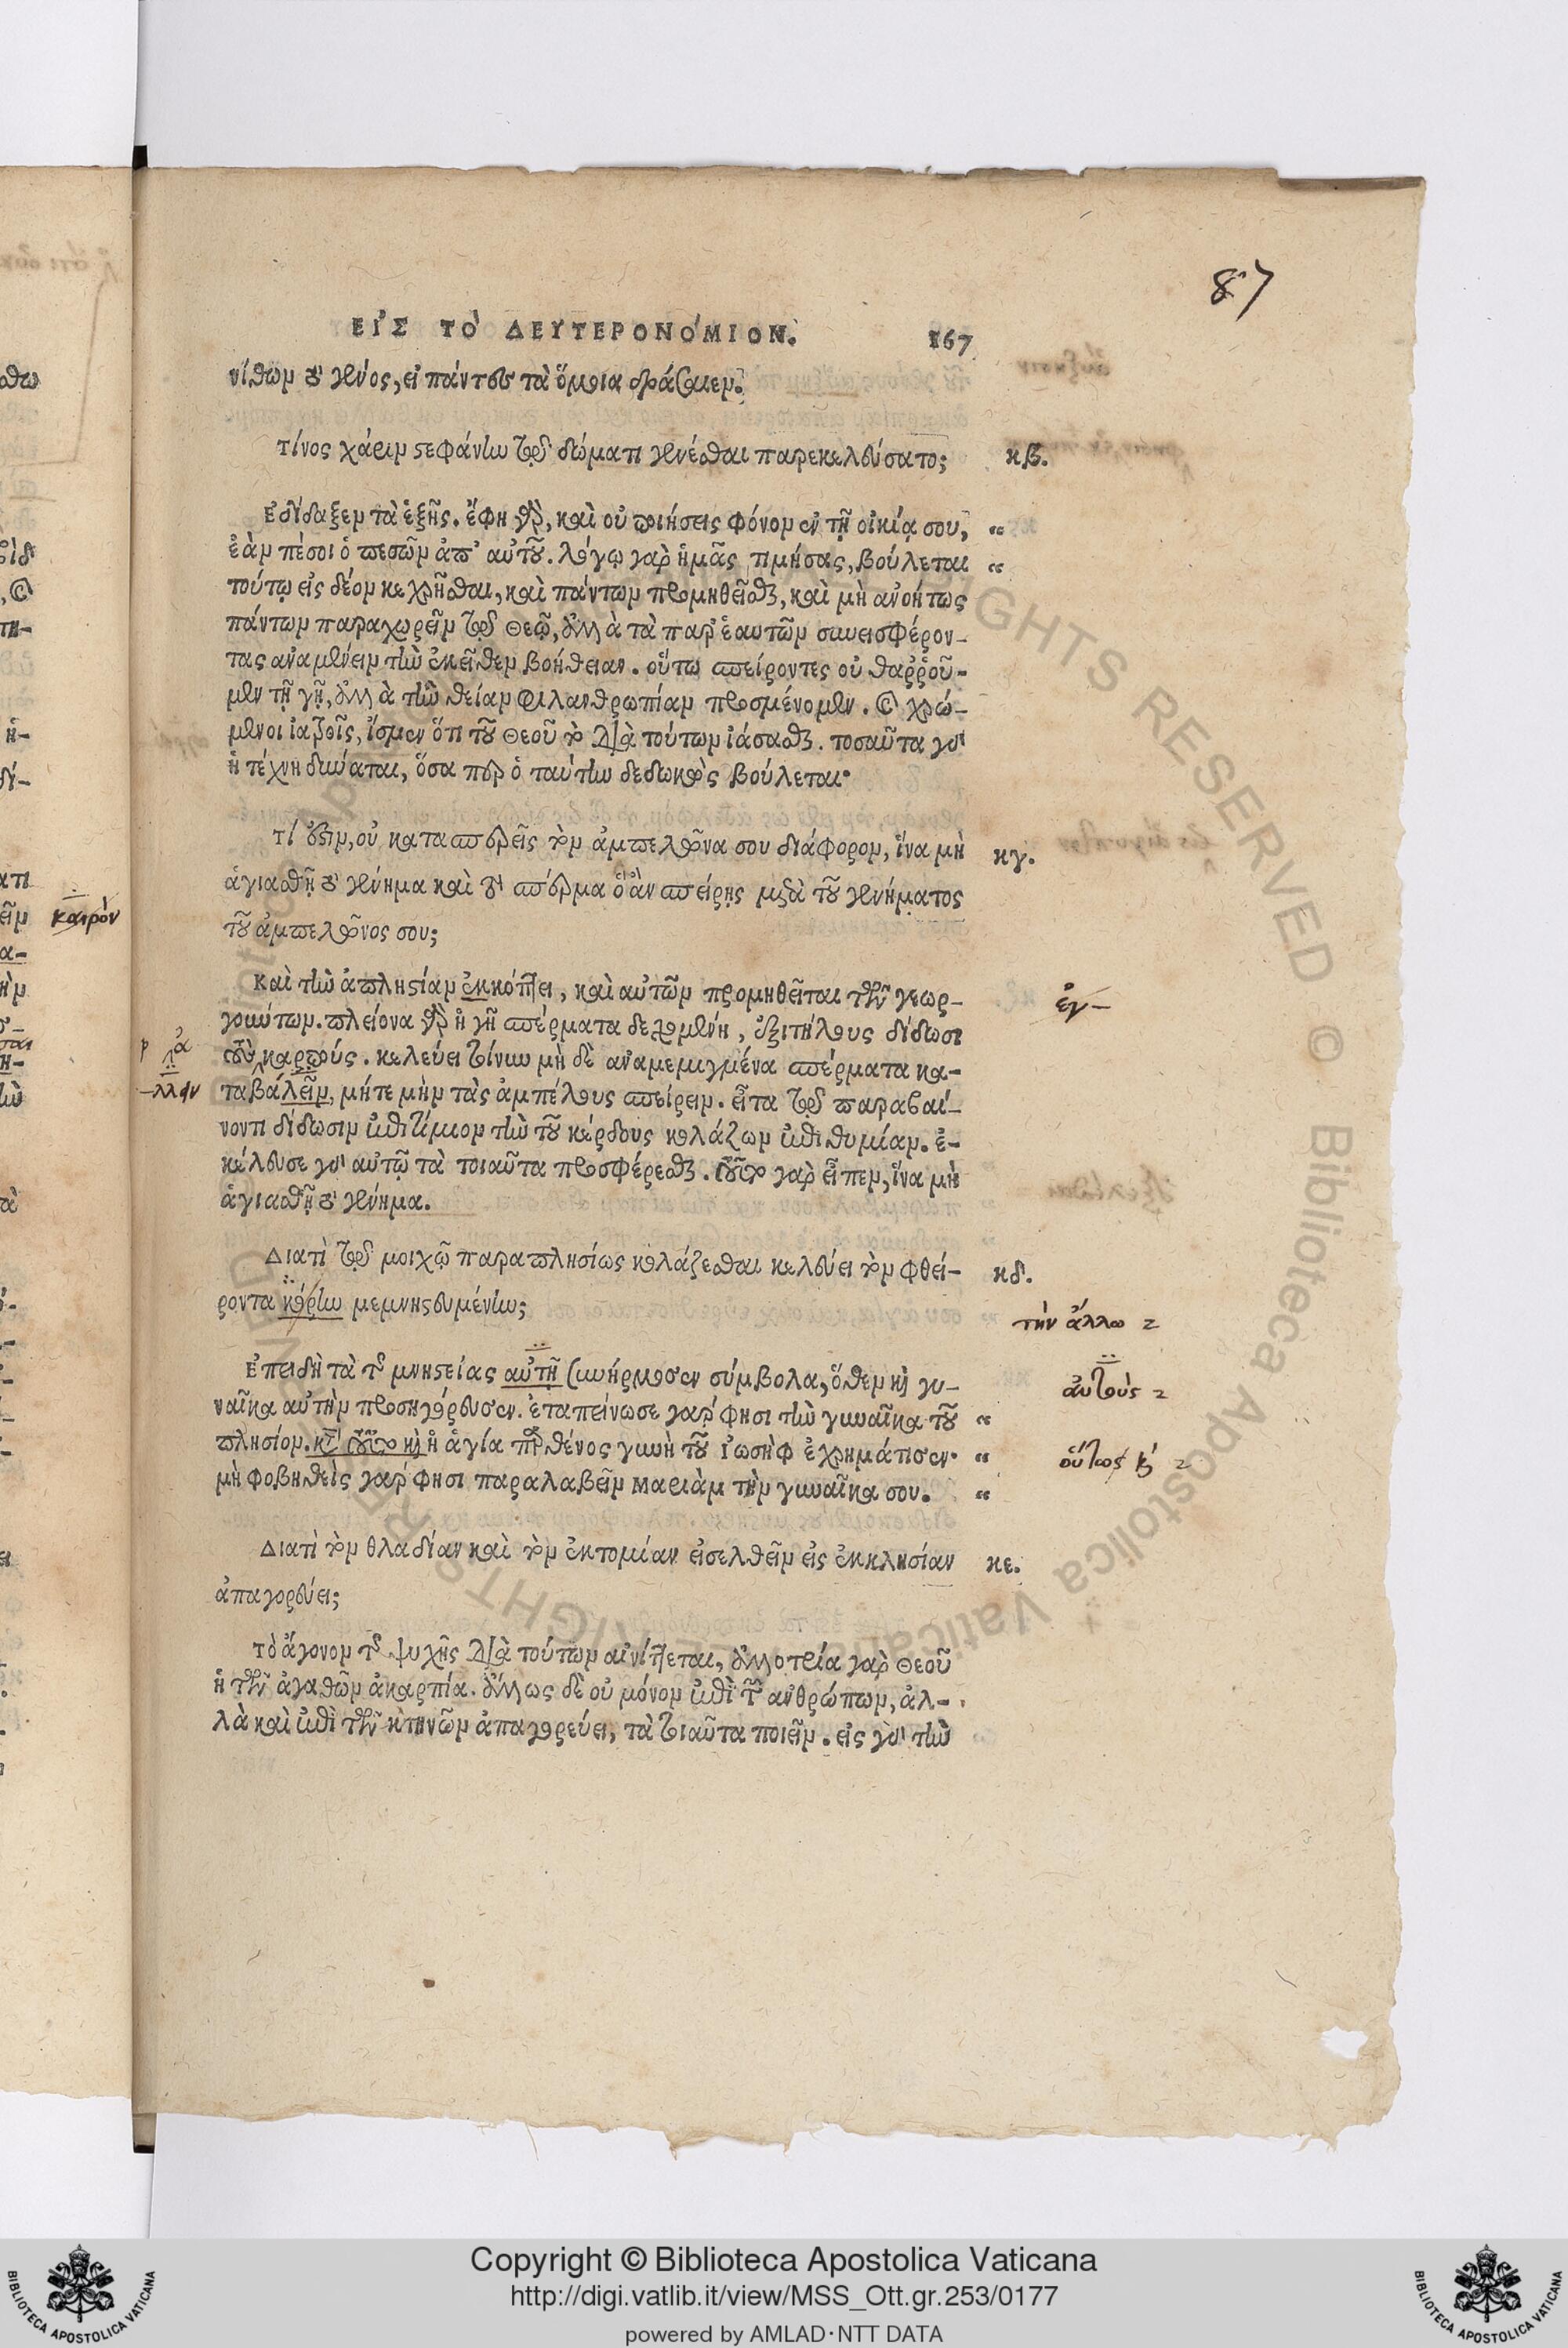 87
ΕΙ'Σ ΤΟ' ΔΕΥΤΕΡΟΝΟ'ΜΙΟΝ. 167
νίθων τὸ γένος, εἰ πάντες τὰ ὅμοια δράσαιεν.
Τίνος χάριν στεφάνην τῷ δώματι γενέσθαι παρεκελεύσατο; κβ.
Εδίδαξεν τὰ ἑξῆς. ἔφη γὰρ, καὶ οὐ ποιήσεις φόνον ἐν τῇ οἰκίᾳ σου, “
ἐὰν πέσοι ὁ πεσὼν ἀπ' αὐτοῦ. λόγῳ γὰρ ἡμᾶς τιμήσας, βούλεται “
τούτῳ εἰς δέον κεχρῆσθαι, καὶ πάντων προμηθεῖσθαι, καὶ μὴ ἀνοήτως
πάντων παραχωρεῖν τῷ Θεῷ, ἀλλὰ τὰ παρ' ἑαυτῶν συνεισφέρον-
τας ἀναμένειν τὴν ἐκεῖθεν βοήθειαν. οὕτω σπείροντες οὐ θαῤῥοῦ-
μεν τῇ γῇ, ἀλλὰ τὴν θείαν φιλανθρωπίαν προσμένομεν. καὶ χρώ-
μενοι ἰατροῖς, ἴσμεν ὅτι τοῦ Θεοῦ τὸ διὰ τούτων ἰάσασθαι. τοσαῦτα γὰρ
ἡ τέχνη δύναται, ὅσα περ ὁ ταύτην δεδωκὼς βούλεται.
Τί ἐστιν, οὐ κατασπερεῖς τὸν ἀμπελῶνα σου διάφορον, ἵνα μὴ κγ.
ἁγιασθῇ τὸ γένημα καὶ τὸ σπέρμα ὃ ἂν σπείρῃς μετὰ τοῦ γενήματος
τοῦ ἀμπελῶνος σου;
καιρὸν
Καὶ τὴν ἀπληστίαν ἐκκόπτει, καὶ αὐτῶν προμηθεῖται τῶν γεωρ- ἐγ-
γούντων. πλείονα γὰρ ἡ γῆ σπέρματα δεχομένη, ἐξιτήλους δίδωσι
τοὺς καρπούς. κελεύει τοίνυν μὴ δὲ ἀναμεμιγμένα σπέρματα κα-
-λλην ταβάλειν, μήτε μὴν τὰς ἀμπέλους σπείρειν. εἶτα τῷ παραβαί-
νοντι δίδωσιν ἐπιτίμιον τὴν τοῦ κέρδους κολάζων ἐπιθυμίαν. ἐ-
κέλευσε γὰρ αὐτῷ τὰ τοιαῦτα προσφέρεσθαι. τοῦτο γὰρ εἶπεν, ἵνα μὴ
ἁγιασθῇ τὸ γένημα.
Διατὶ τῷ μοιχῷ παραπλησίως κολάζεσθαι κελεύει τὸν φθεί- κδ.
ροντα κόρην μεμνηστευμένην; τὴν ἄλλω
Επειδὴ τὰ τῆς μνηστείας αὐτῇ συνήρμοσεν σύμβολα, ὅθεν καὶ γυ- αὐτοὺς
ναῖκα αὐτὴν προσηγόρευσεν. ἐταπείνωσε γάρ φησι τὴν γυναῖκα τοῦ “
πλησίον. κατὰ τοῦτο καὶ ἡ ἁγία παρθένος γυνὴ τοῦ Ἰωσὴφ ἐχρημάτισεν. “ οὕτως καὶ
μὴ φοβηθεὶς γάρ φησι παραλαβεῖν Μαριὰμ τὴν γυναῖκα σου. “
Διατὶ τὸν θλαδίαν καὶ τὸν ἐκτομίαν εἰσελθεῖν εἰς ἐκκλησίαν κε.
ἀπαγορεύει;
Τὸ ἄγονον τῆς ψυχῆς διὰ τούτων αἰνίττεται, ἀλλοτρία γὰρ Θεοῦ
ἡ τῶν ἀγαθῶν ἀκαρπία. ἄλλως δὲ οὐ μόνον ἐπὶ τῶν ἀνθρώπων, ἀλ-
λὰ καὶ ἐπὶ τῶν κτηνῶν ἀπαγορεύει, τὰ τοιαῦτα ποιεῖν. εἰς γὰρ τὴν
RIGHTS RESERVED © Biblioteca Apostolica Vaticana
Copyright © Biblioteca Apostolica Vaticana
http://digi.vatlib.it/view/MSS_Ott.gr.253/0177
powered by AMLAD·NTT DATA
BIBLIOTECA APOSTOLICA VATICANA
BIBLIOTECA APOSTOLICA VATICANA